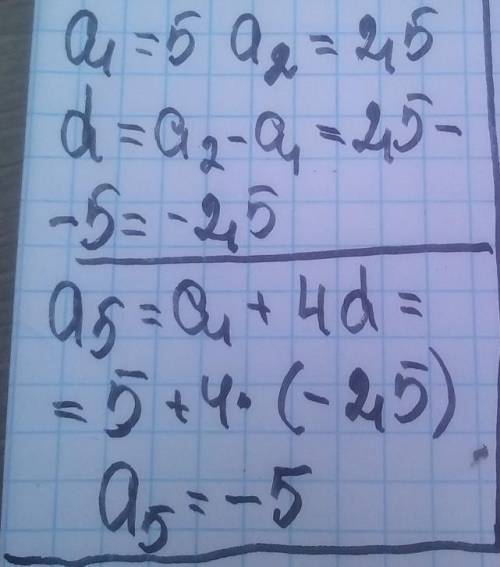 a₁ = 5 a₂ = 2,5
d = a₂ - a₁ = 2,5 -
- 5 = - 2,5
a₅ = a₁ + 4d =
= 5 + 4 · (- 2,5)
a₅ = - 5